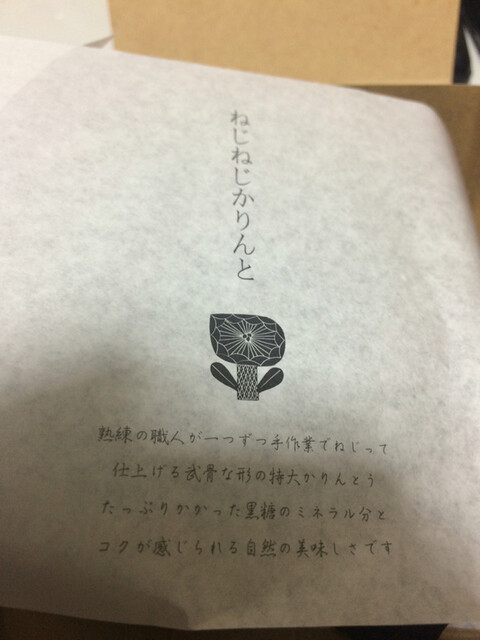 ねじねじかりんと
熟練の職人が一つずつ手作業でねじって
仕上げる武骨な形の特大かりんとう
たっぷりかかった黒糖のミネラル分と
コクが感じられる自然の美味しさです